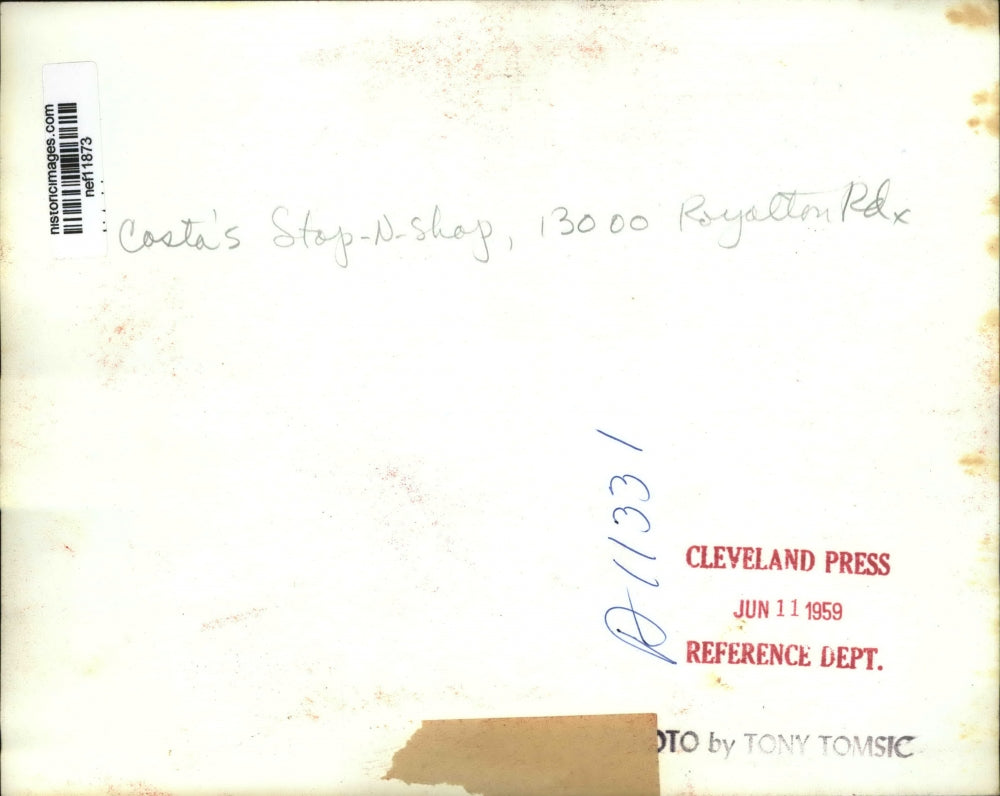 historicimages.com
nef11873
Costa's Stop-N-Shop, 13000 Royalton Rd x
A11331
CLEVELAND PRESS
JUN 11 1959
REFERENCE DEPT.
OTO by TONY TOMSIC